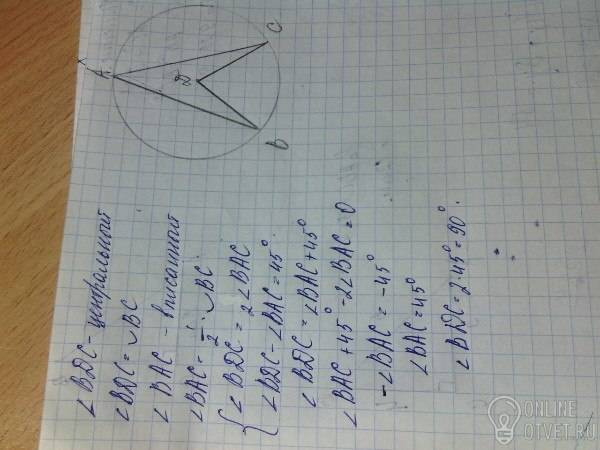 A
C
D
B
∠BDC - центральный
∠BDC = ◡BC
∠BAC - вписанный
∠BAC = 1/2 · ◡BC
{ ∠BDC = 2∠BAC
∠BDC - ∠BAC = 45°
∠BDC = ∠BAC + 45°
∠BAC + 45° - 2∠BAC = 0
-∠BAC = -45°
∠BAC = 45°
∠BDC = 2·45° = 90°.
ONLINE
OTVET.RU